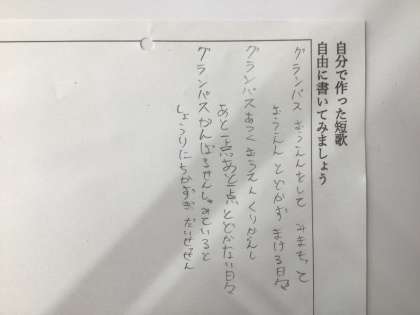 自分で作った短歌
自由に書いてみましょう
グランパス おうえんをして みまもって
おうえん とどかず まける日々
グランパスあつくおうえんくりかえし
あと一点あと一点 とどかない日々
グランパスがんばるせんしゅみていると
しょうりにちかずき だいせっせん